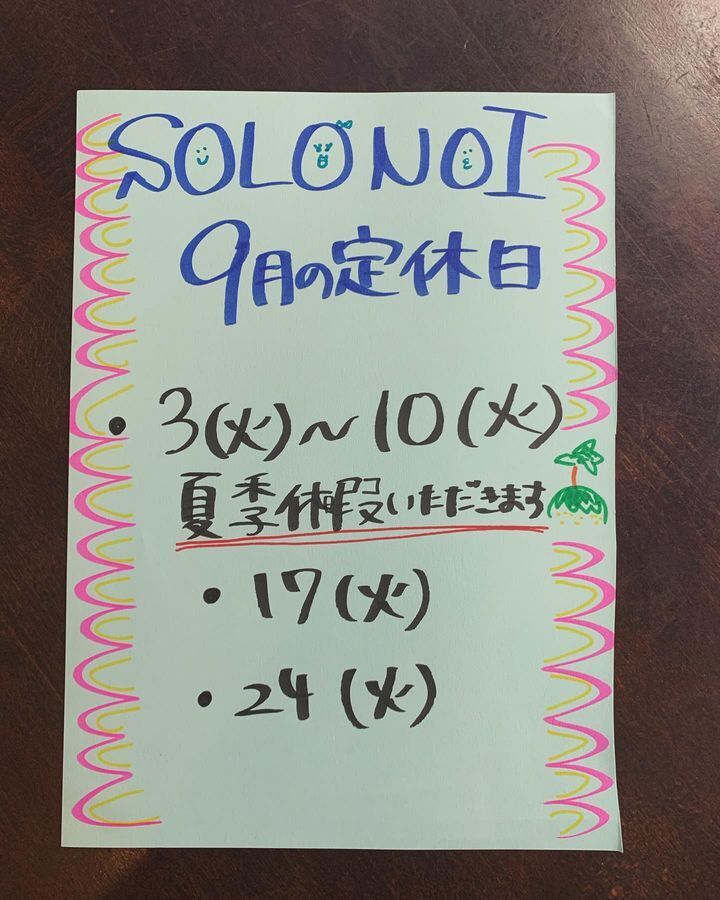 SOLO NOI
9月の定休日
• 3(火)~10(火)
夏季休暇いただきます
• 17(火)
• 24(火)